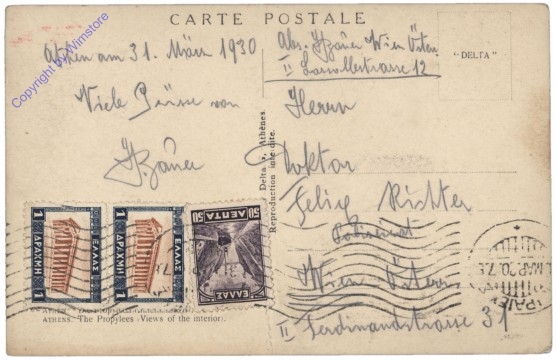 CARTE POSTALE
Athen am 31. März 1930
Viele Grüsse von
Copyright by Wimstore
Abs. Wien Österr
II Lassallestrasse 12
"DELTA"
Herrn
Doktor
Felix Richter
Wien Österr
II Ferdinandstrasse 31
Delta, Athènes
Reproduction interdite.
1 ΔΡΑΧΜΗ 1
ΕΛΛΑΣ
1 ΔΡΑΧΜΗ 1
ΕΛΛΑΣ
50 ΛΕΠΤΑ 50
ΕΛΛΑΣ
ATHENS. The Propylees (Views of the interior).